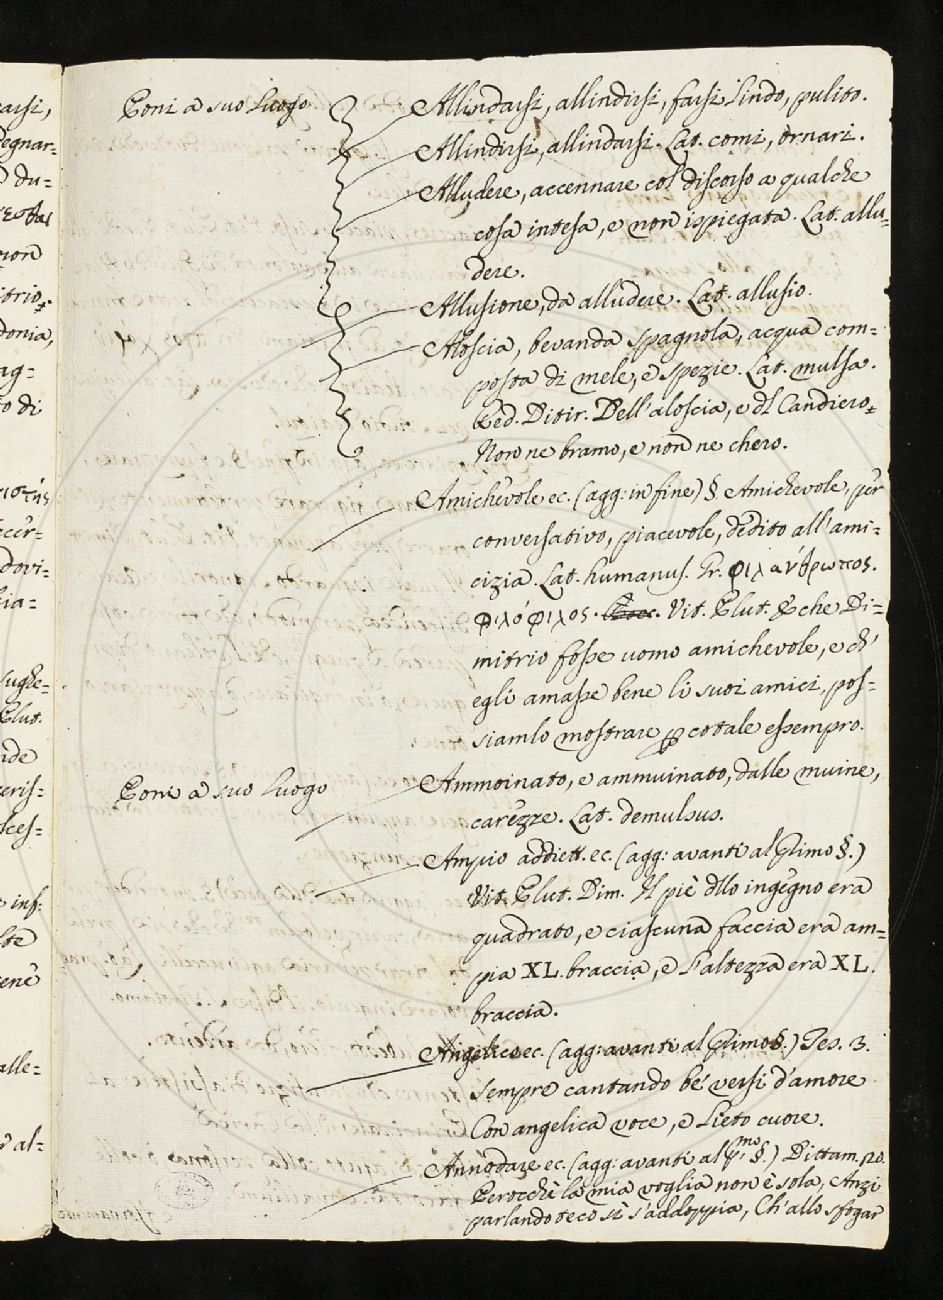 Poni a suo Luogo
Allindarsi, allindirsi, farsi lindo, pulito.
Allindirsi, allindarsi. Lat. comi, ornari.
Alludere, accennare col discorso a qualche
cosa intesa, e non ispiegata. Lat. allu=
dere.
Allusione, da alludere. Lat. allusio.
Aloscia, bevanda spagnola, acqua com=
posta di mele, e spezie. Lat. mulsa.
Red. Ditir. Dell'aloscia, e dl Candiero,
Non ne bramo, e non ne chero.
Amichevole ec. (agg: in fine) §. Amichevole, per
conversativo, piacevole, dedito all'ami=
cizia. Lat. humanus. Gr. φιλάνθρωπος.
φιλόφιλος. Vit. Plut. E che Di=
mitrio fosse uomo amichevole, e ch'
egli amasse bene li suoi amici, pos=
siamlo mostrare p cotale essempro.
Poni a suo Luogo
Ammoinato, e ammuinato, dalle muine,
carezze. Lat. demulsus.
Ampio addiett. ec. (agg: avanti al Primo §.)
Vit. Plut. Dim. Il piè dllo ingegno era
quadrato, e ciascuna faccia era am=
pia XL. braccia, e l'altezza era XL.
braccia.
Angelico ec. (agg: avanti al Primo §.) Tes. 3.
Sempre cantando be' versi d'amore
Con angelica voce, e lieto cuore.
Annodare ec. (agg: avanti al pmo §.) Dittam. 20.
Perocchè la mia voglia non è sola, Anzi
parlando teco sì s'addoppia, Ch'allo sfogar